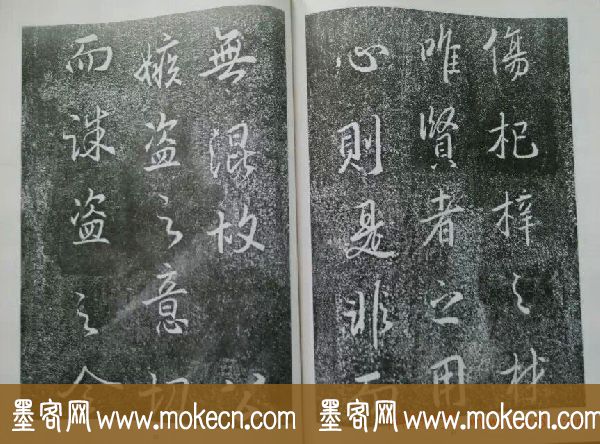 傷杞梓之
唯賢者之用
心則是非
無混故
嫉盗之意切
而誅盗之
墨客网 www.mokecn.com 墨客网 www.mokecn.com